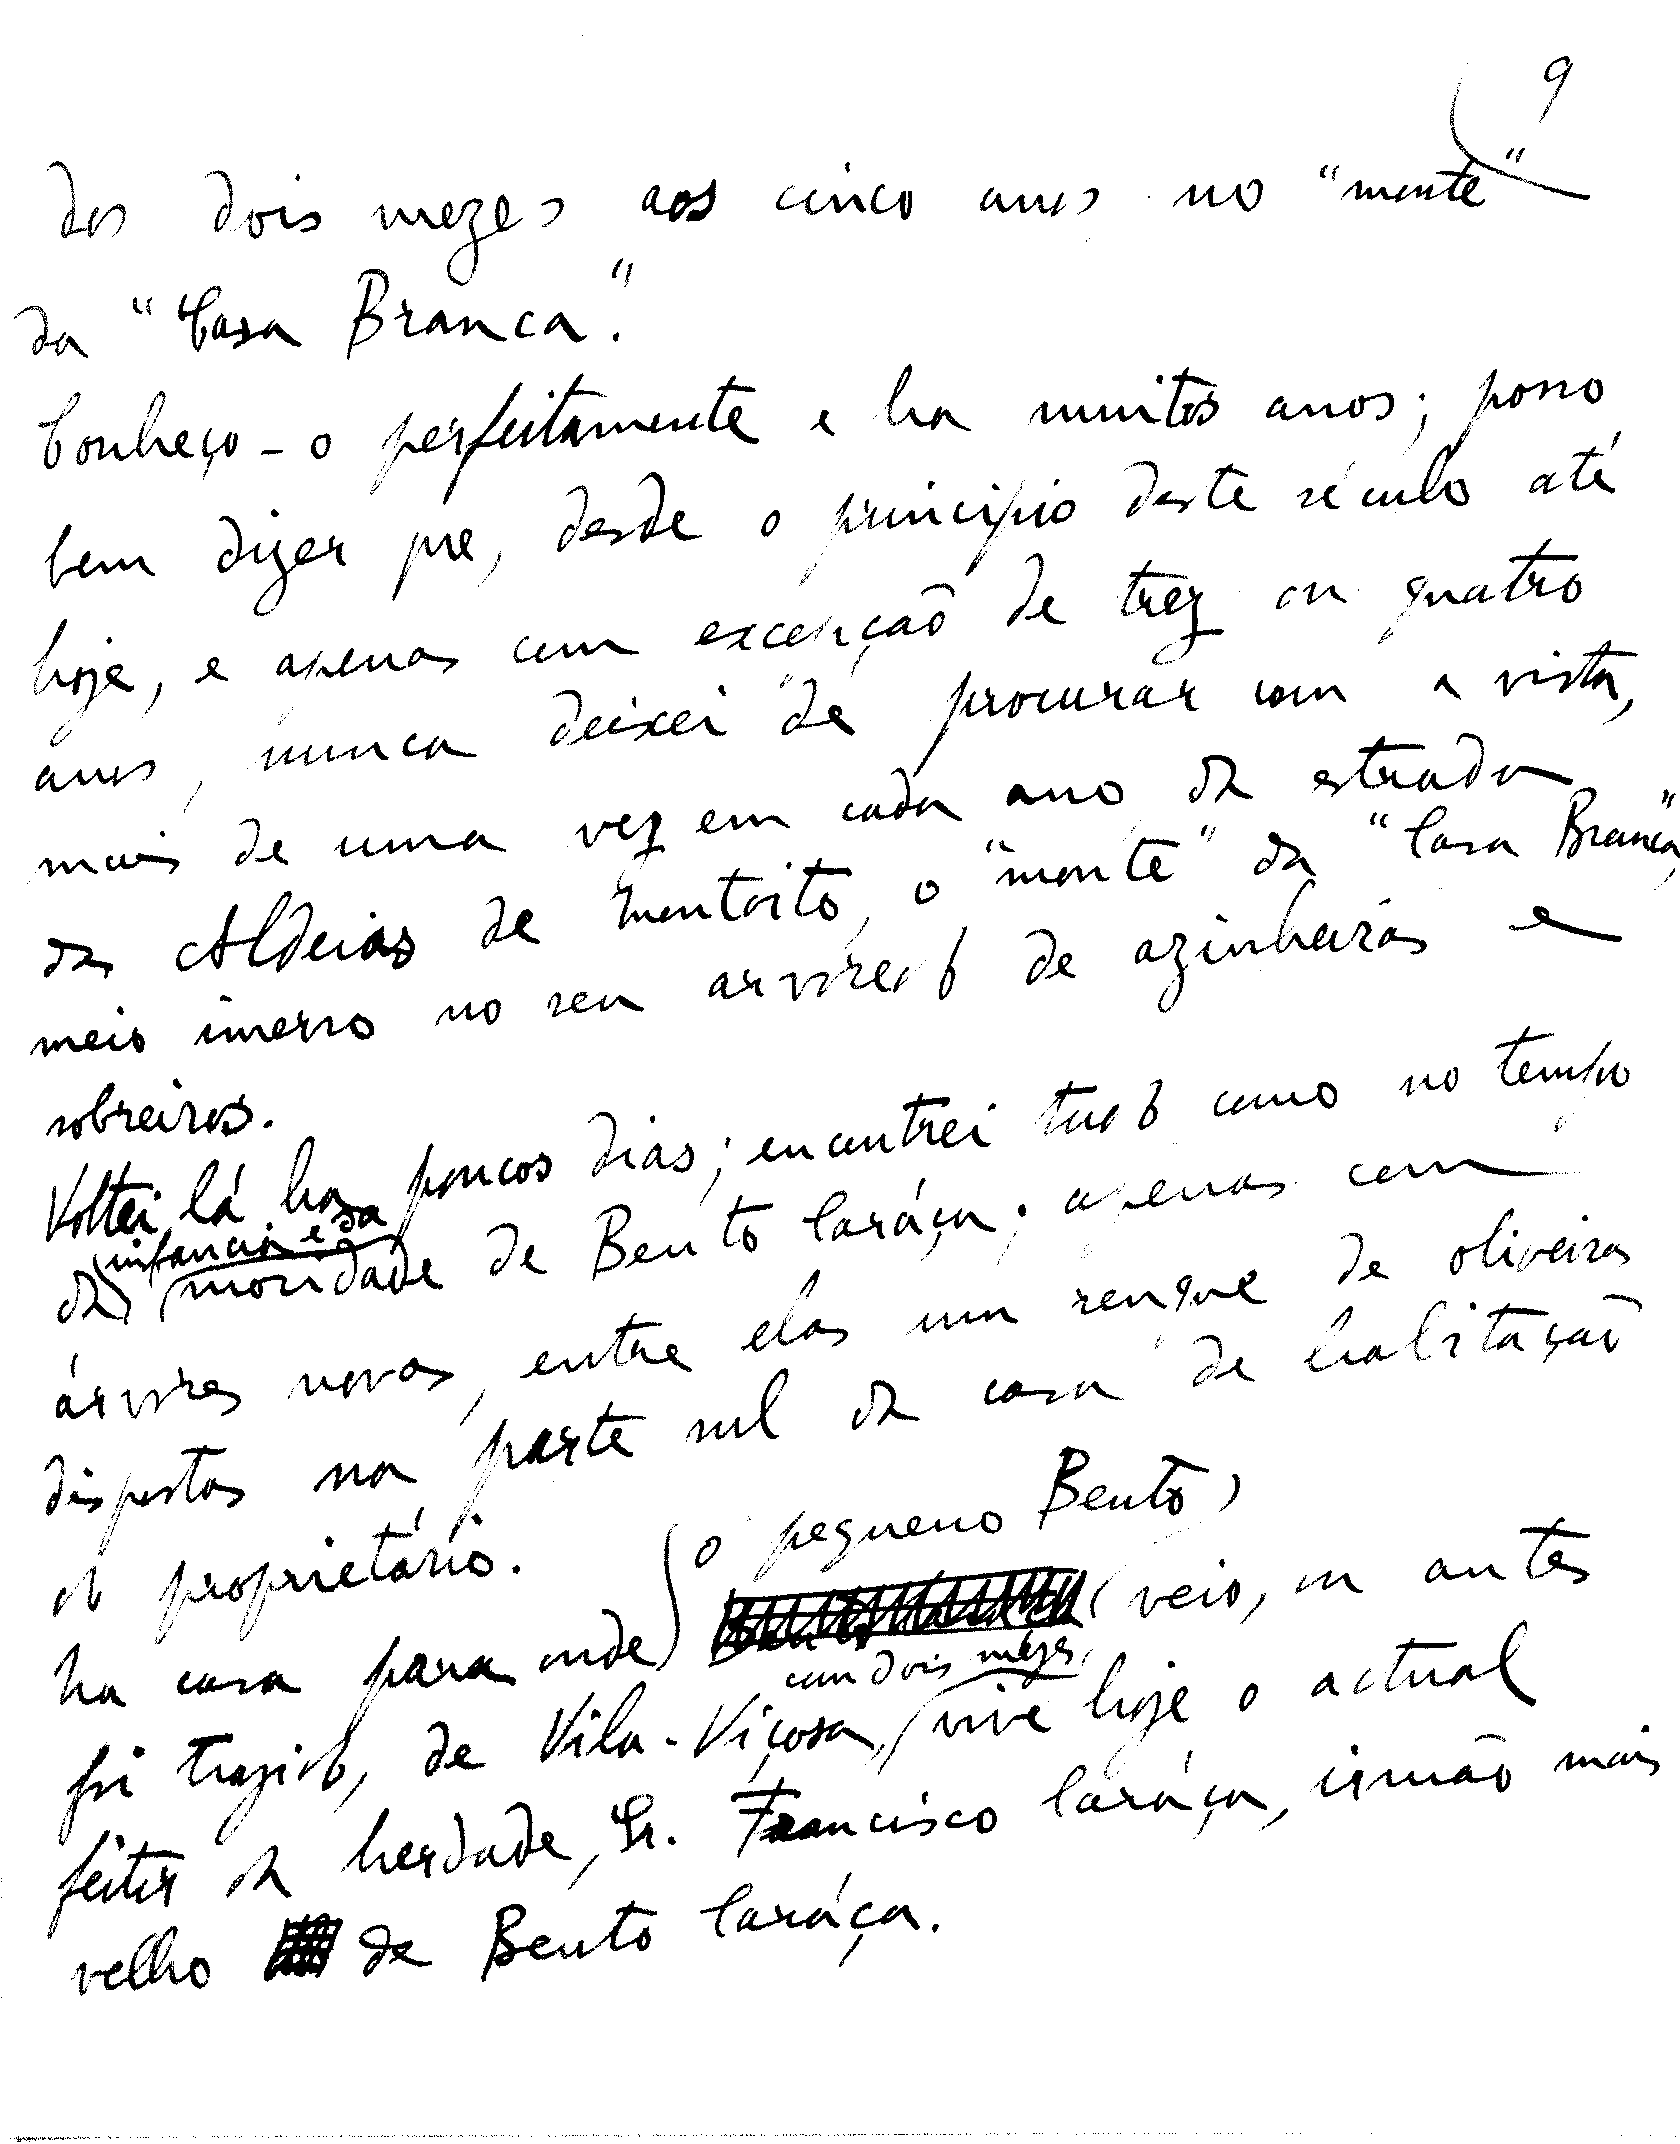 9
dos dois mezes aos cinco anos no "monte"
da "Casa Branca".
Conheço-o perfeitamente e ha muitos anos; posso
bem dizer que, desde o principio deste século até
hoje, e apenas com excepção de trez ou quatro
anos, nunca deixei de procurar com a vista,
mais de uma vez em cada ano, da estrada
das Aldeias de Montoito, o "monte" da "Casa Branca",
meio imerso no seu arvoredo de azinheiras e
sobreiros.
Voltei lá ha poucos dias; encontrei tudo como no tempo
infancia e da
da mocidade de Bento Caráça; apenas com
árvores novas, entre elas um renque de oliveiras
dispostas na parte sul da casa de habitação
do proprietário.
o pequeno Bento,
Na casa para onde veio, ou antes
com dois mezes,
foi trazido, de Vila-Viçosa, vive hoje o actual
feitor da herdade, Sr. Francisco Caráça, irmão mais
velho de Bento Caráça.